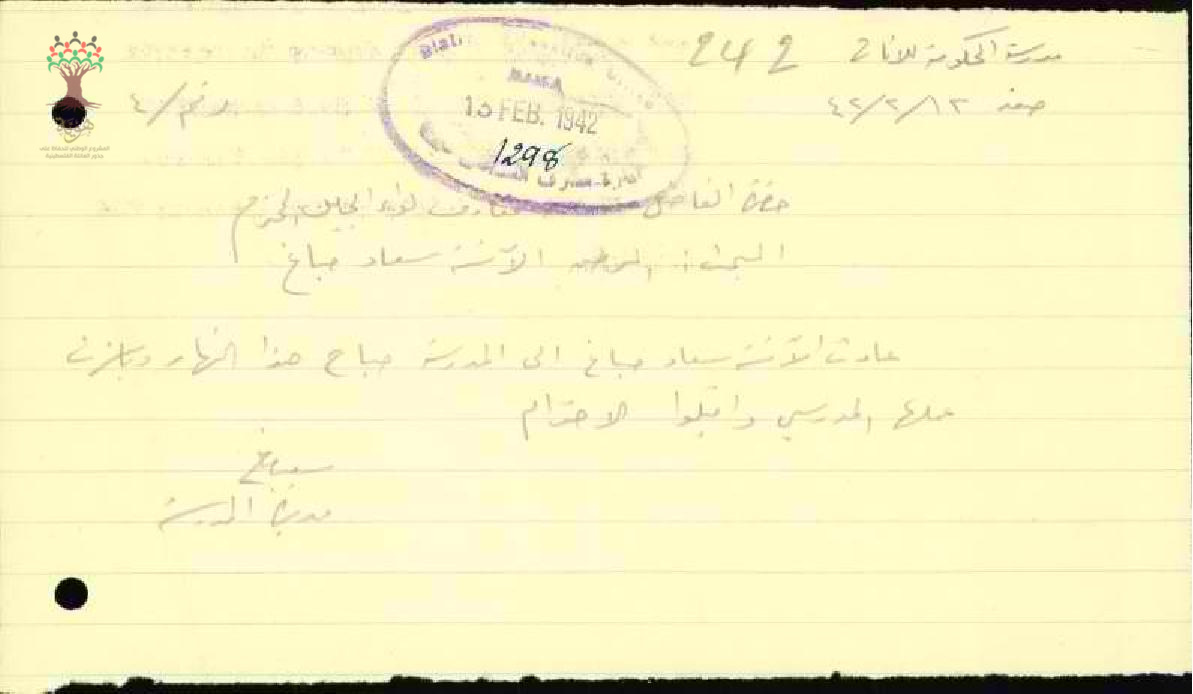 مدرسة الحكومة للاناث
242
صفد ٤٢/٢/١٣
رقم/٤
District
HAIFA
13 FEB. 1942
1298
حضرة الفاضل معارف لواء الجليل المحترم
المبحث: الآنسة سعاد صباغ
عادت الآنسة سعاد صباغ الى المدرسة صباح هذا النهار وباشرت
عملها المدرسي واقبلوا الاحترام
مديرة المدرسة